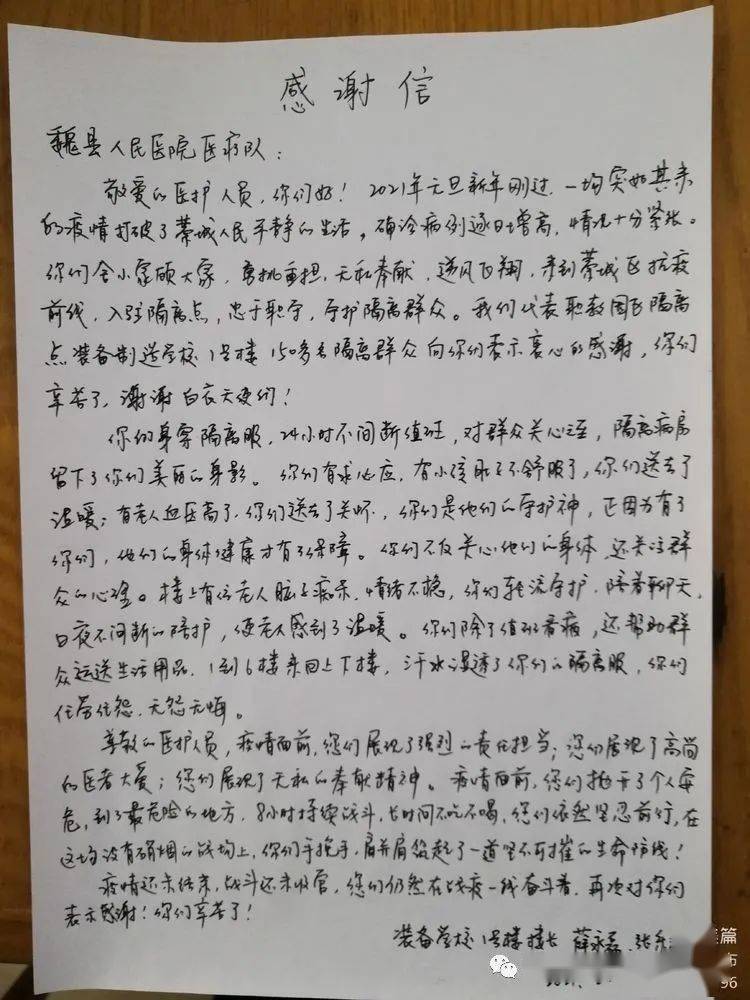 感谢信
魏县人民医院医疗队：
敬爱的医护人员，你们好！2021年元旦新年刚过，一场突如其来
的疫情打破了藁城人民平静的生活。确诊病例逐日增高，情况十分紧张。
你们舍小家顾大家，勇挑重担，无私奉献，逆风飞翔，来到藁城区抗疫
前线，入驻隔离点，忠于职守，守护隔离群众。我们代表职教园区隔离
点装备制造学校1号楼150多名隔离群众向你们表示衷心的感谢，你们
辛苦了，谢谢白衣天使们！
你们身穿隔离服，24小时不间断值班，对群众关心之至，隔离病房
留下了你们美丽的身影。你们有求必应，有小孩肚子不舒服了，你们送去了
温暖；有老人血压高了，你们送去了关怀，你们是他们的守护神，正因为有了
你们，他们的身体健康才有了保障。你们不仅关心他们的身体，还关注群
众的心理。楼上有位老人脑子痴呆，情绪不稳，你们轮流守护，陪着聊天，
日夜不间断的陪护，使老人感到了温暖。你们除了值班看病，还帮助群
众运送生活用品，1到6楼来回上下楼，汗水浸透了你们的隔离服，你们
任劳任怨，无怨无悔。
尊敬的医护人员，疫情面前，您们展现了强烈的责任担当；您们展现了高尚
的医者大爱；您们展现了无私的奉献精神。疫情面前，您们抛开了个人安
危，到了最危险的地方，8小时持续战斗，长时间不吃不喝，您们依然坚忍前行，在
这场没有硝烟的战场上，你们手挽手，肩并肩筑起了一道坚不可摧的生命防线！
疫情还未结束，战斗还未收官，您们仍然在战疫一线奋斗着，再次对你们
表示感谢！你们辛苦了！
装备学校1号楼楼长 薛永磊 张
篇
布
96